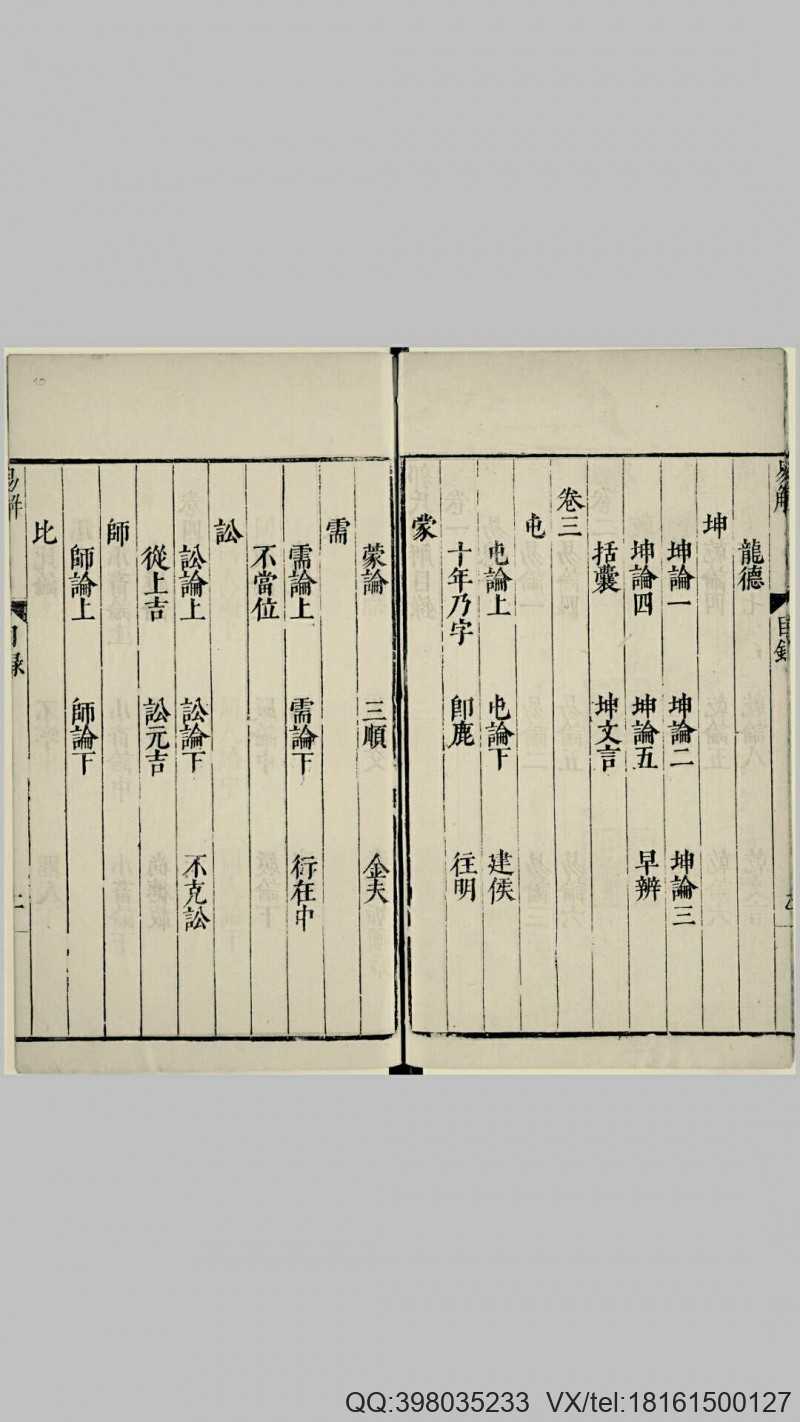 龍德
坤
坤論一 坤論二 坤論三
坤論四 坤論五 早辨
括囊 坤文言
卷三
屯
屯論上 屯論下 建侯
十年乃字 卽鹿 往明
蒙
蒙論 三順 金夫
需
需論上 需論下 衍在中
不當位
訟
訟論上 訟論下 不克訟
從上吉 訟元吉
師
師論上 師論下
比
QQ:398035233 VX/tel:18161500127